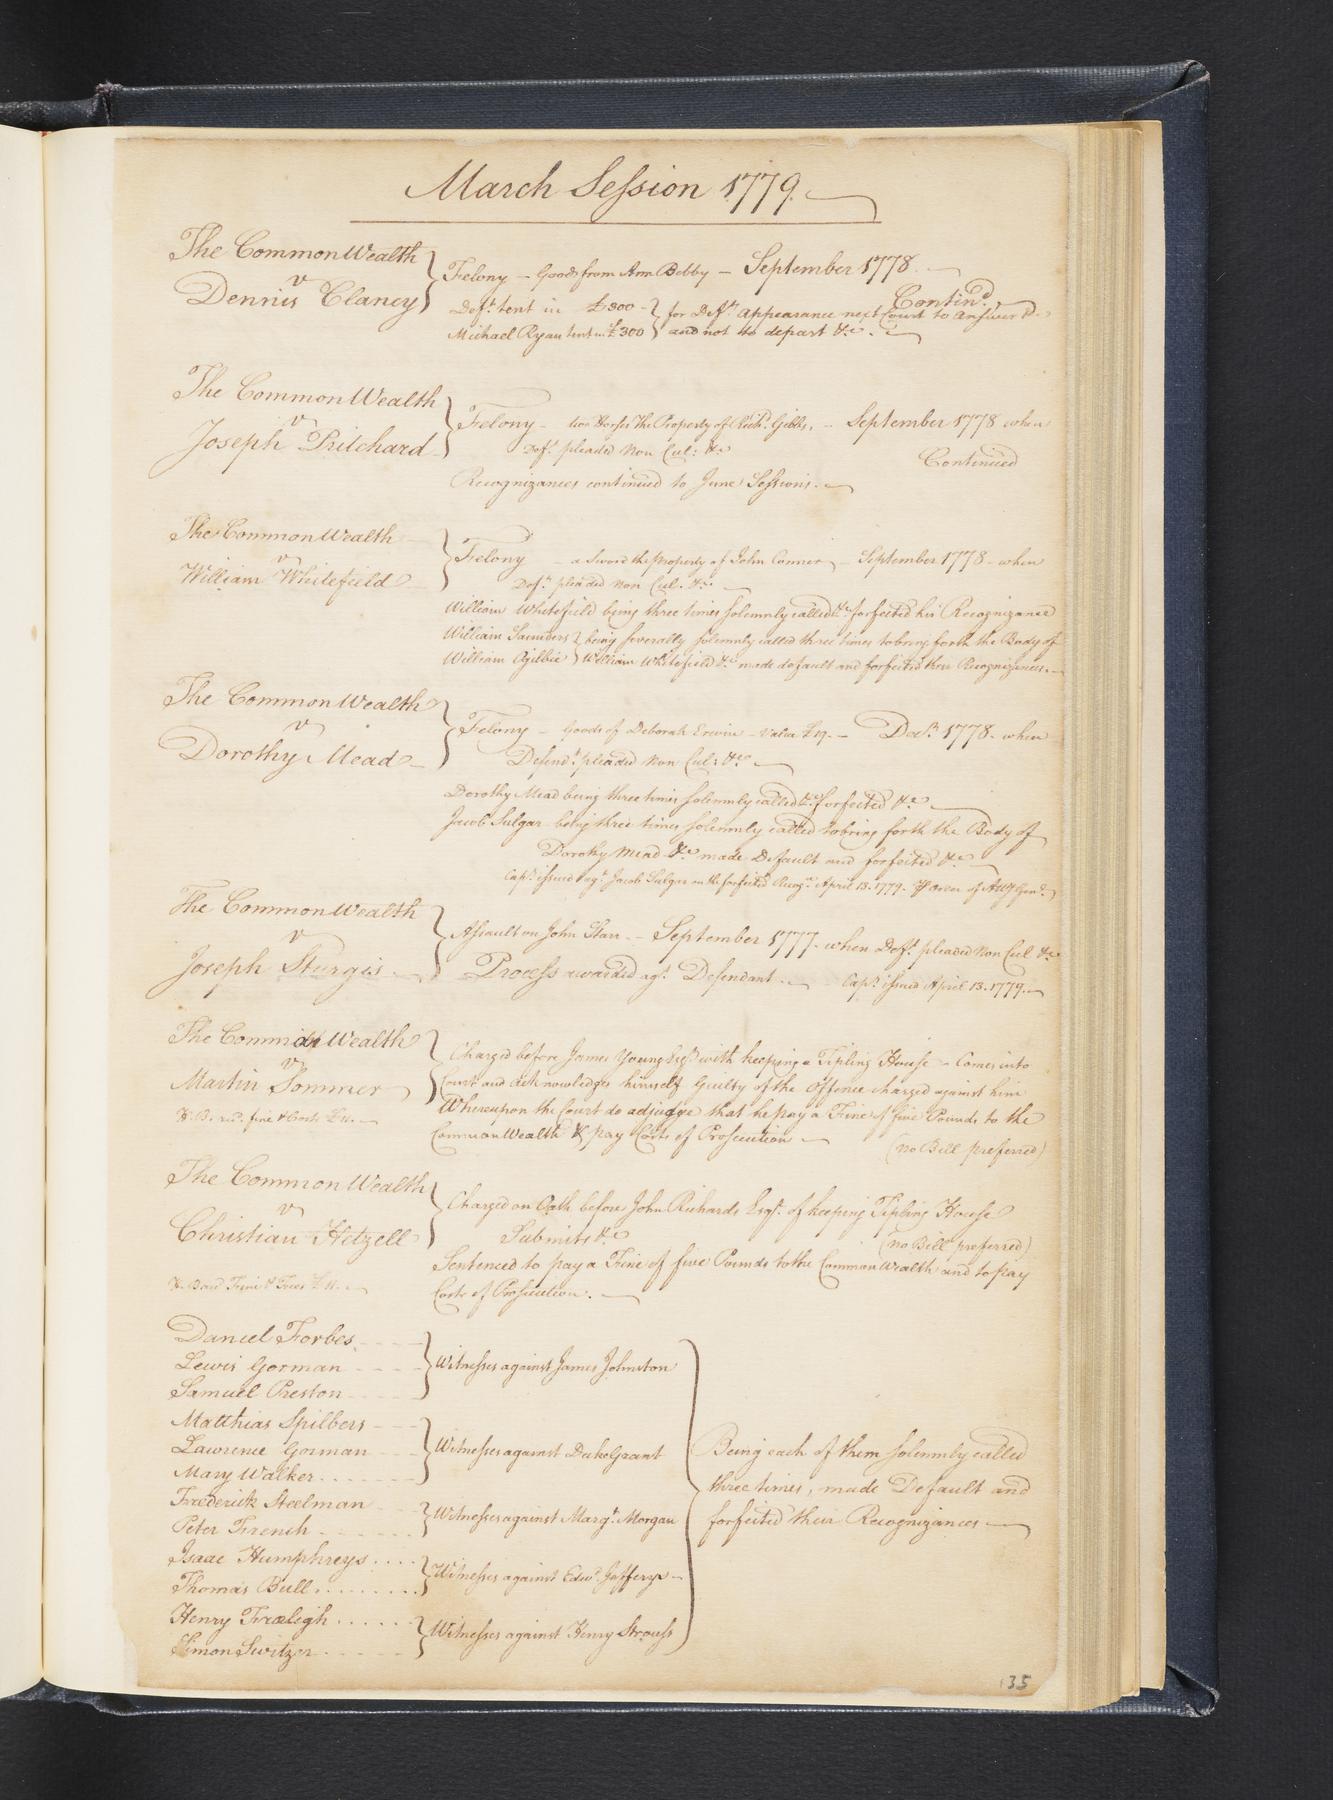 March Session 1779
The CommonWealth
v
Dennis Clancy
Felony - Goods from Ann Bobby - September 1778
Contin.d
Def.t tent in £300 - for Def.ts appearance next Court to answer &c
Michael Ryan tent in £300 and not to depart &c.
The CommonWealth
v
Joseph Pritchard
Felony - two Horses The Property of Rich.d Gibbs, - September 1778 when
Def.t pleaded Non Cul: &c
Continued
Recognizances continued to June Sessions.
The CommonWealth
v
William Whitefield
Felony - a Sword the property of John Conner - September 1778 - when
Def.t pleaded Non Cul. &c.
William Whitefield being three times solemnly called &c forfeited his Recognizance
William Saunders being severally solemnly called three times to bring forth the Body of
William Ogilbie William Whitefield &c made default and forfeited their Recognizances.
The CommonWealth
v
Dorothy Mead
Felony - Goods of Deborah Erwin - Value £19. - Dec.r 1778. when
Defend.t pleaded Non Cul: &c
Dorothy Mead being three times solemnly called &c forfeited &c
Jacob Sulgar being three times solemnly called to bring forth the Body of
Dorothy Mead &c made Default and forfeited &c
Cap.s issued ag.t Jacob Sulgar on the forfeited Recog.ce April 13. 1779. order of Atty Gen.l
The CommonWealth
v
Joseph Sturgis
Assault on John Starr - September 1777. when Def.t pleaded Non Cul &c
Process awarded ag.t Defendant. Cap.s issued April 13. 1779.
The CommonWealth
v
Martin Sommer
Charged before James Young Esq.r with keeping a Tipling House - Comes into
Court and acknowledges himself Guilty of the Offence charged against him
Whereupon the Court do adjudge that he pay a Fine of five Pounds to the
N.B. rec.d fine & Costs
CommonWealth & pay Costs of Prosecution
(no Bill preferred)
The CommonWealth
v
Christian Hetzell
Charged on Oath before John Richards Esq.r of keeping Tipling House
Submits &c
(no Bill preferred)
Sentenced to pay a Fine of five Pounds to the CommonWealth and to pay
Fine & Fees
Costs of Prosecution.
Daniel Forbes
Lewis Gorman
Samuel Preston
Witnesses against James Johnston
Matthias Spilbers
Lawrence Gorman
Mary Walker
Witnesses against Duke Grant
Frederick Steelman
Peter French
Witnesses against Marg.t Morgan
Isaac Humphreys
Thomas Bull
Witnesses against Edw.d Jefferys
Henry Fraleigh
Simon Switzer
Witnesses against Henry Strouss
Being each of them solemnly called
three times, made Default and
forfeited their Recognizances
135